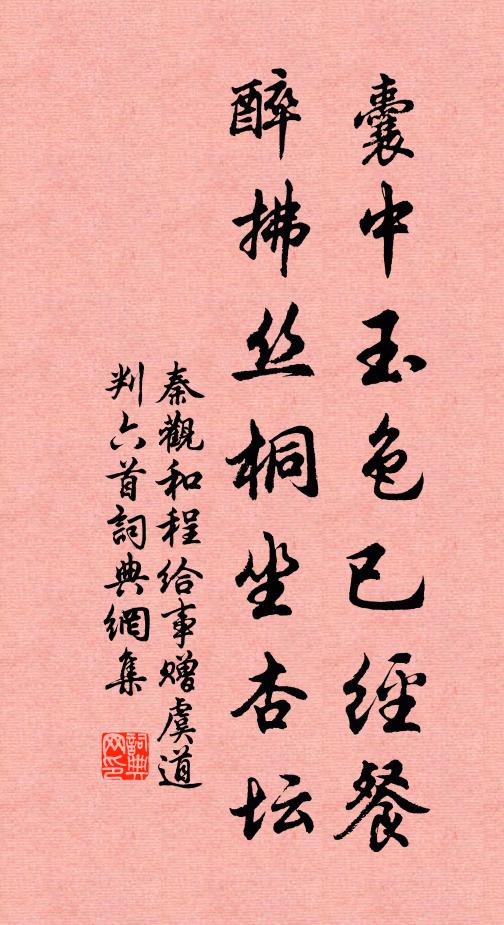 囊中玉色已經餐
醉拂丝桐坐杏坛
秦觀和程给事赠虞道
判六首詞典網集
詞典
网印